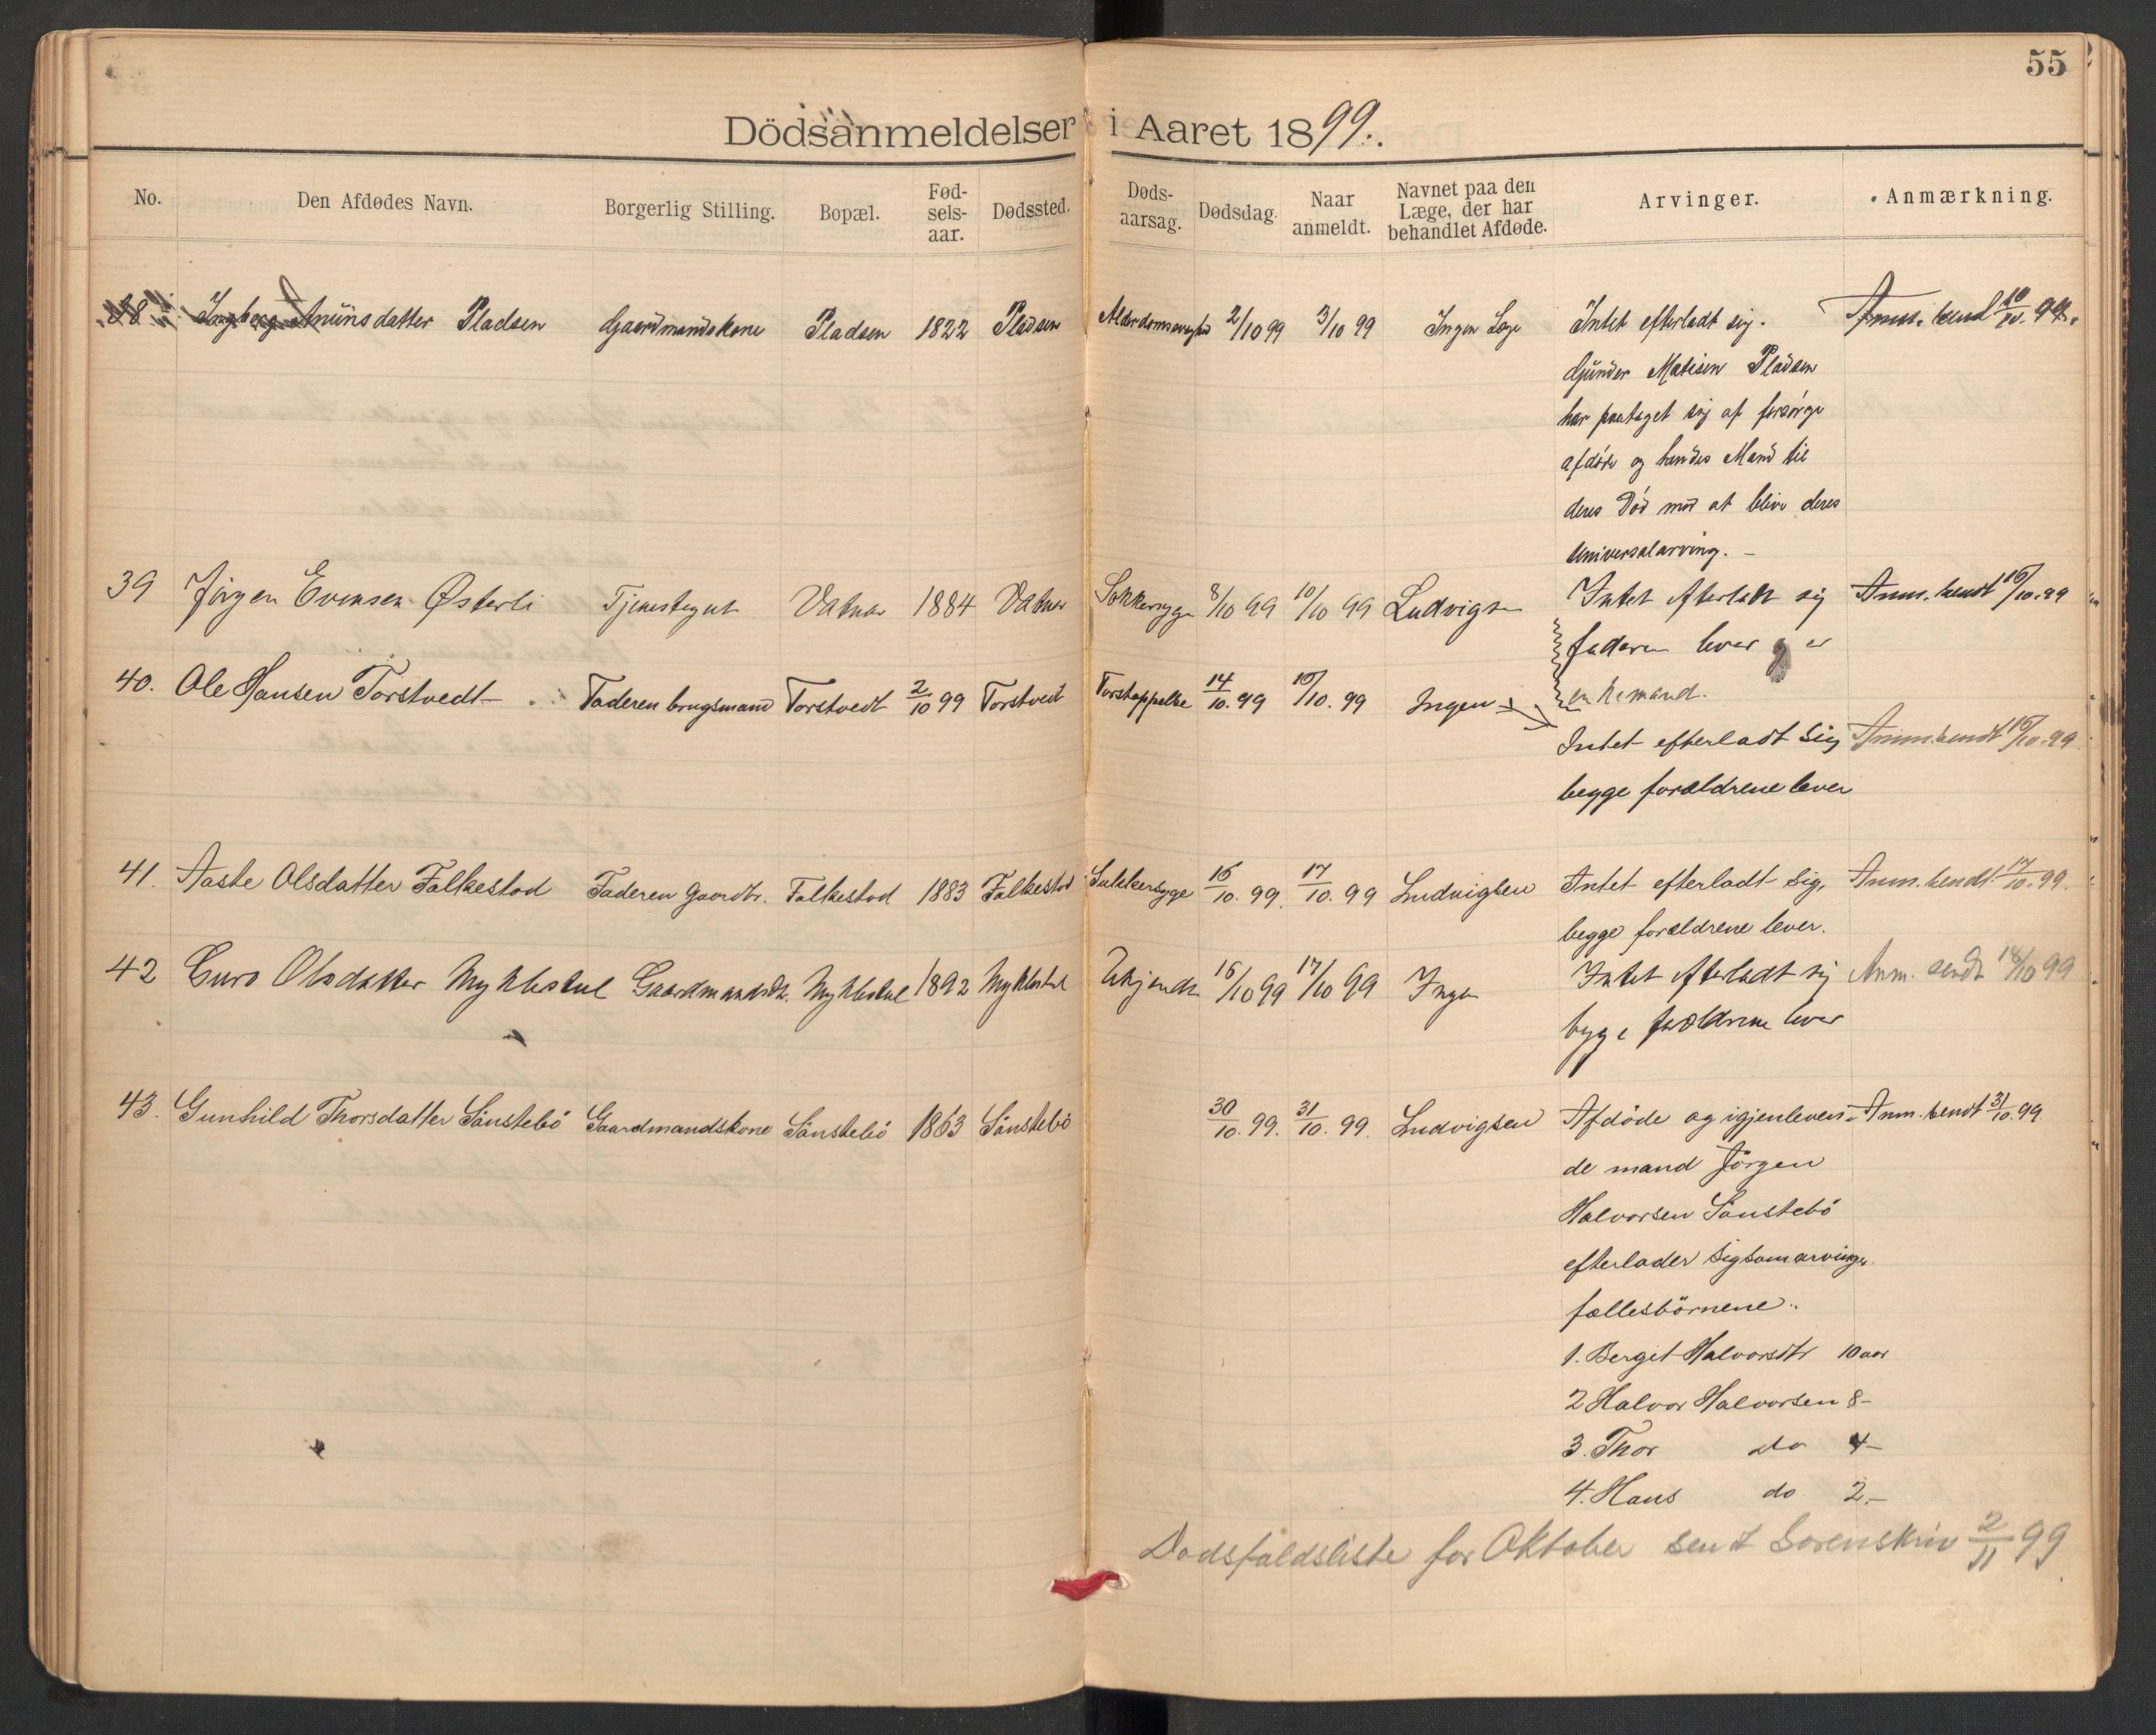 55
Dödsanmeldelser i Aaret 1899.
No. Den Afdødes Navn. Borgerlig Stilling. Bopæl. Fød-sels-aar. Dødssted. Døds-aarsag. Dødsdag. Naar anmeldt. Navnet paa den Læge, der har behandlet Afdøde. Arvinger. Anmærkning.
38 Ingborg Anunsdatter Pladsen Gaardmandskone Pladsen 1822 Pladsen Alderdomssvaghed 2/10 99 3/10 99 Ingen Læge Intet efterladt sig. Anm. send 10/10. 99.
Gunder Matisen Pladsen
har paataget sig at forsörge
afdöde og hendes Mand til
deres Död mod at blive deres
Universalarving. –
39 Jörgen Evensen Østerli Tjenestegut Vatnar 1884 Vatnar Sokkersyge 8/10 99 10/10 99 Ludvigsen Intet efterladt sig Anm. sendt 10/10. 99
faderen lever og er
40. Ole Hansen Torstvedt Faderen brugsmand Torstvedt 2/10 99 Torstvedt Forstoppelse 14/10. 99 15/10. 99 Ingen
Intet efterladt sig Anm. sendt 16/10. 99
begge forældrene lever
41. Aaste Olsdatter Falkestad Faderen Gaardbr. Falkestad 1883 Falkestad Sukkersyge 16/10. 99. 17/10. 99 Ludvigsen Intet efterladt sig, Anm. sendt 17/10. 99.
begge forældrene lever.
42 Guro Olsdatter Myklestul Gaardmandsdt. Myklestul 1892 Myklestul Ukjendt 16/10 99 17/10 99 Ingen Intet efterladt sig Anm. sendt 18/10 99
begge forældrene lever
43. Gunhild Thorsdatter Sönstebö Gaardmandskone Sönstebö 1863 Sönstebö 30/10. 99. 31/10. 99. Ludvigsen Afdöde og igjenleven- Anm. sendt 31/10. 99.
de mand Jörgen
Halvorsen Sönstebö
efterlader sig som arvinger
fællesbörnene.
1. Berget Halvorsdtr 10 aar
2 Halvor Halvorsen 8 –
3. Thor do 4 –
4. Hans do. 2. –
Dodsfaldsliste for Oktober sendt Sorenskriv 2/11 99.